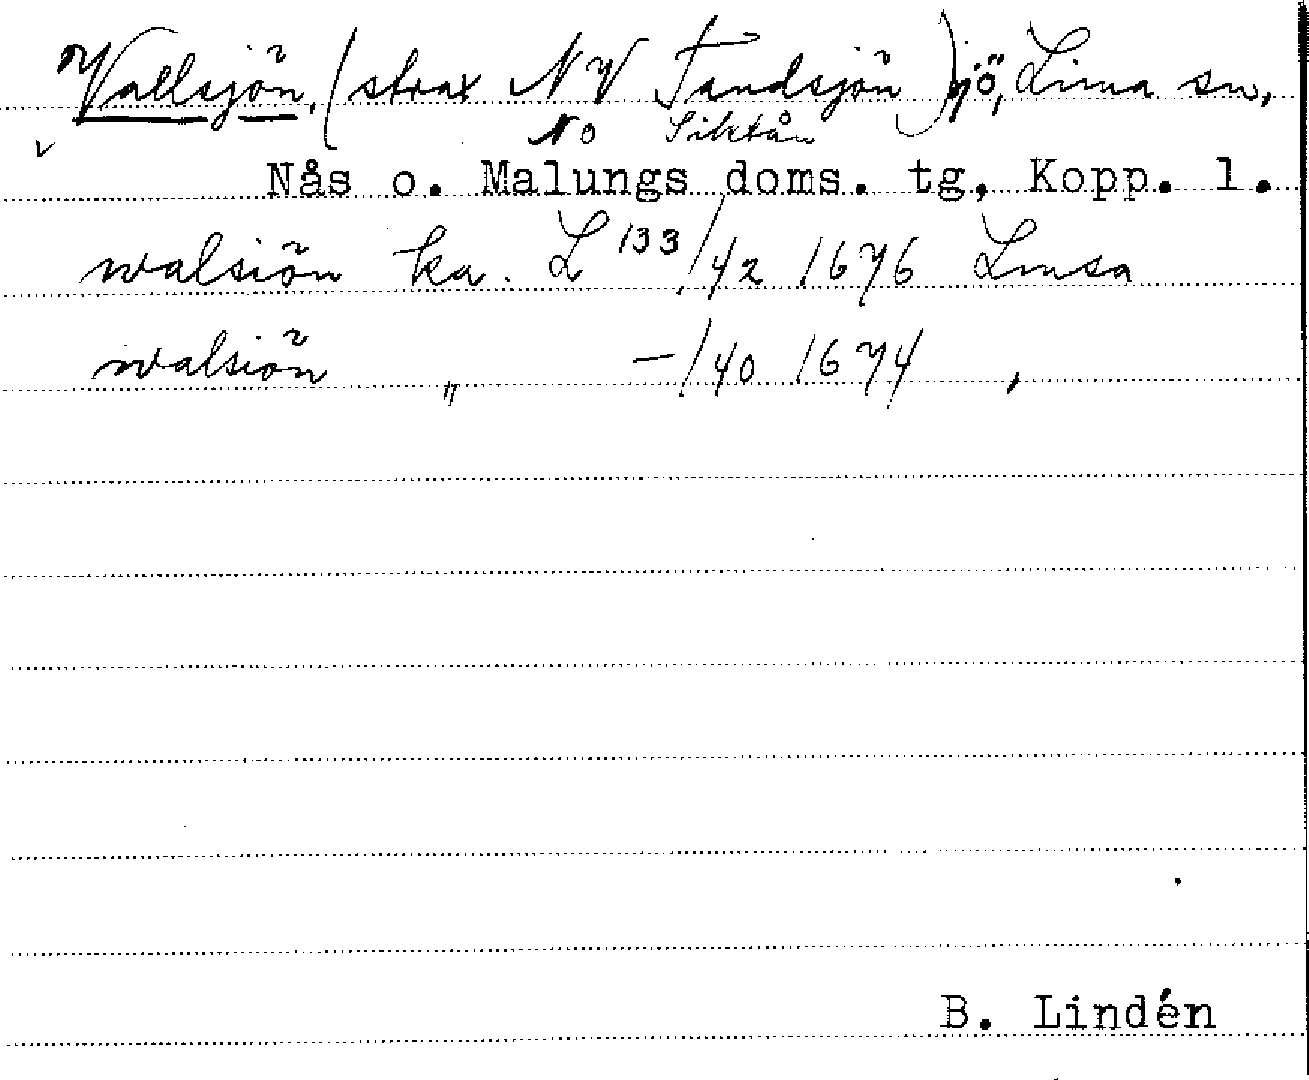 Vallsjön, (strax NV Tandsjön) sjö, Lima sn,
NO Siktån
Nås o. Malungs doms. tg, Kopp. l.
walsiön ka. L 133/42 1676 Limsa
walsiön " -/40 1674 "
B. Lindén